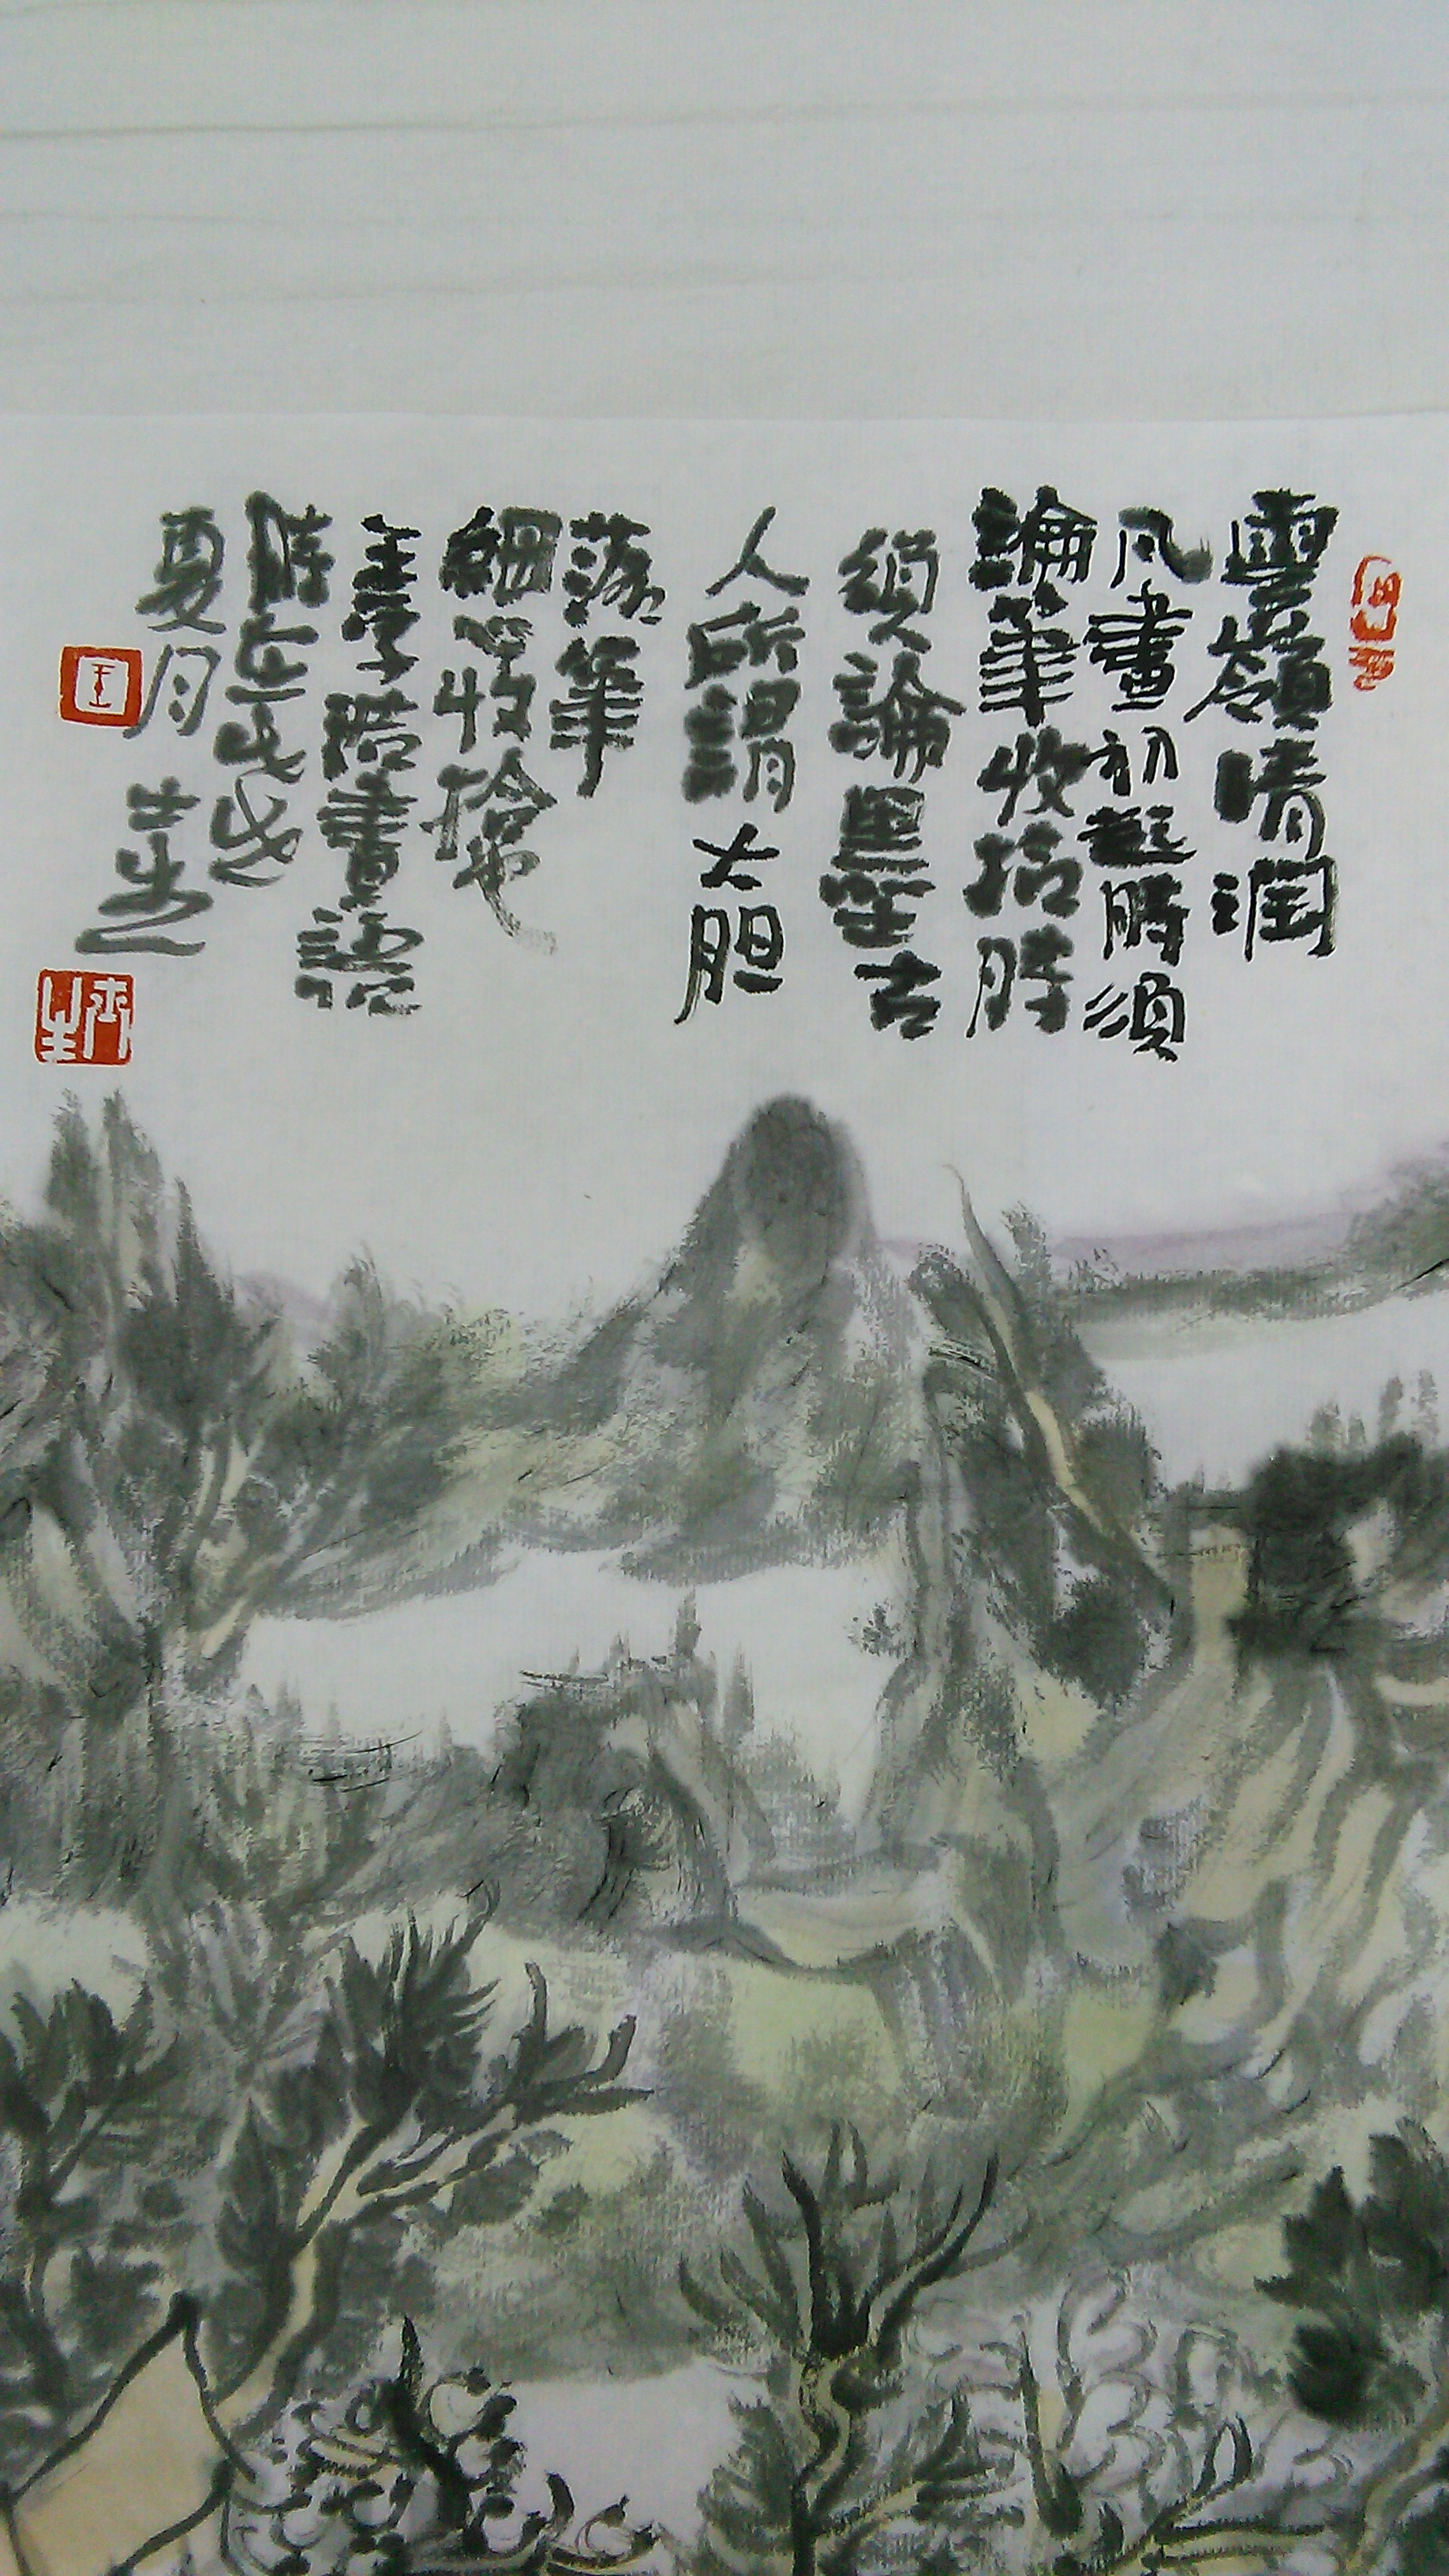 雲嶺晴潤
凡畫初起時須
論筆收拾時
須論墨古
人所謂大胆
落筆
細心收拾也
王学浩畫語
時在
夏月